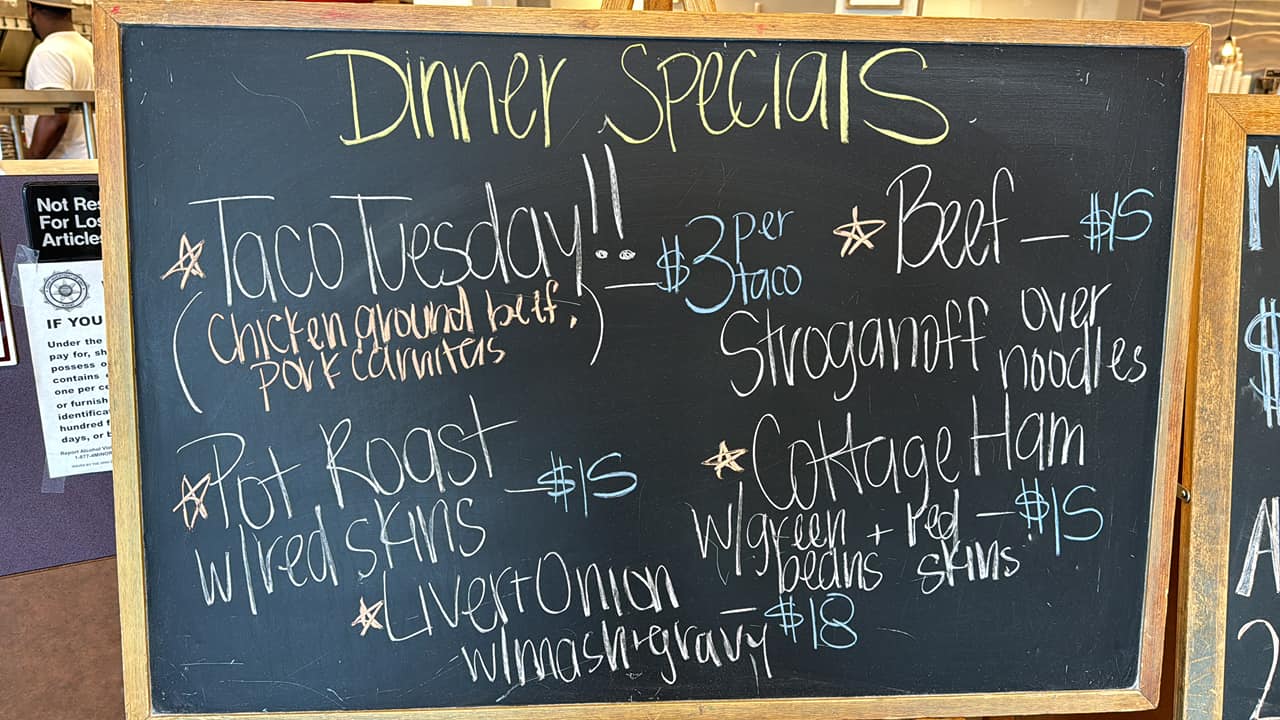 Dinner Specials
Taco Tuesday!! — $3 per taco
(Chicken ground beef, pork carniters)
Pot Roast — $15
w/red skins
Beef — $15
Stroganoff over noodles
Cottage Ham
w/green beans + red skins — $15
Liver + Onion
w/mash + gravy — $18
Not Res
For Los
Articles
IF YOU
Under the
pay for, sh
possess o
contains
one per ce
or furnish
identifica
hundred f
days, or b